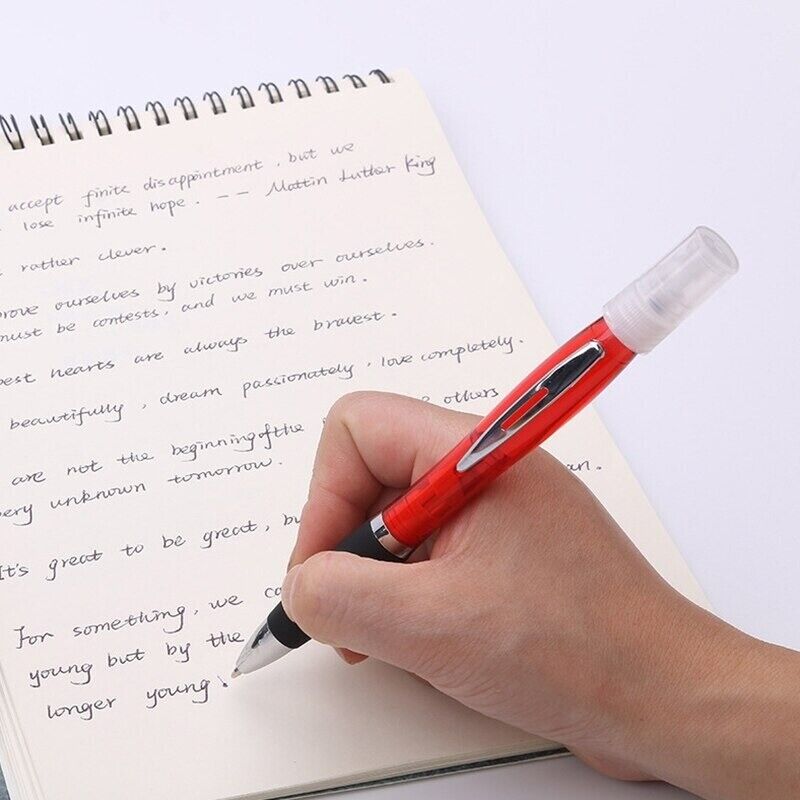 accept finite disappointment, but we
lose infinite hope. -- Mattin Luther King
rather clever.
prove ourselves by victories over ourselves.
must be contests, and we must win.
best hearts are always the bravest.
beautifully, dream passionately, love completely.
are not the beginning of the others
very unknown tomorrow. an.
It's great to be great, bu
For something, we ca
young but by the
longer young